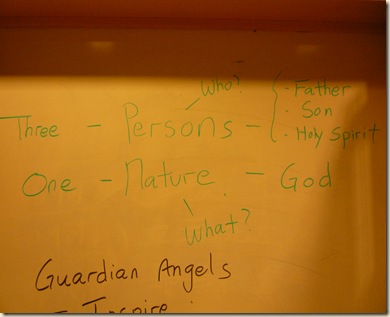 Who?
Three - Persons - { - Father
- Son
- Holy Spirit
One - Nature - God
What?
Guardian Angels
- Inspire